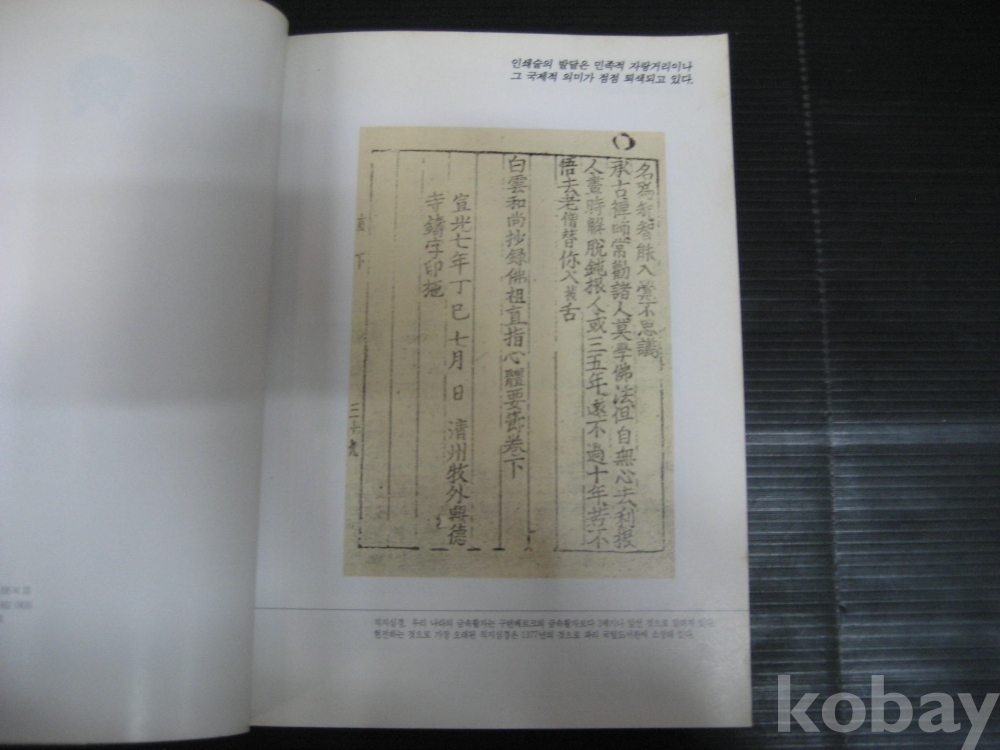 인쇄술의 발달은 민족적 자랑거리이나
그 국제적 의미가 점점 퇴색되고 있다.
名為 智能入 不思議
承古禪師常勸諸人莫學佛法但自無心去利根
人晝時解脫鈍根人或三五年遠不過十年若不
悟去老僧替你入 舌
白雲和尚抄錄佛祖直指心體要節卷下
宣光七年丁巳七月 日 淸州牧外興德
寺鑄字印施
下 三十九
직지심경. 우리 나라의 금속활자는 구텐베르크의 금속활자보다 2세기나 앞선 것으로 알려져 있다.
현전하는 것으로 가장 오래된 직지심경은 1377년의 것으로 파리 국립도서관에 소장돼 있다.
kobay